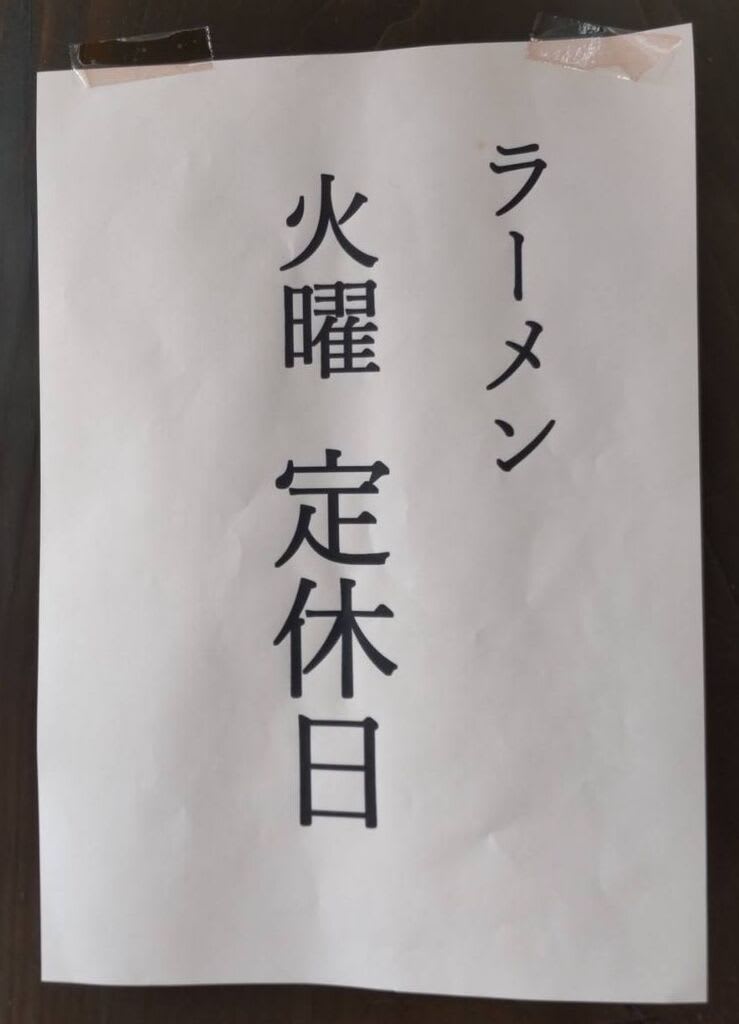 ラーメン
火曜 定休日